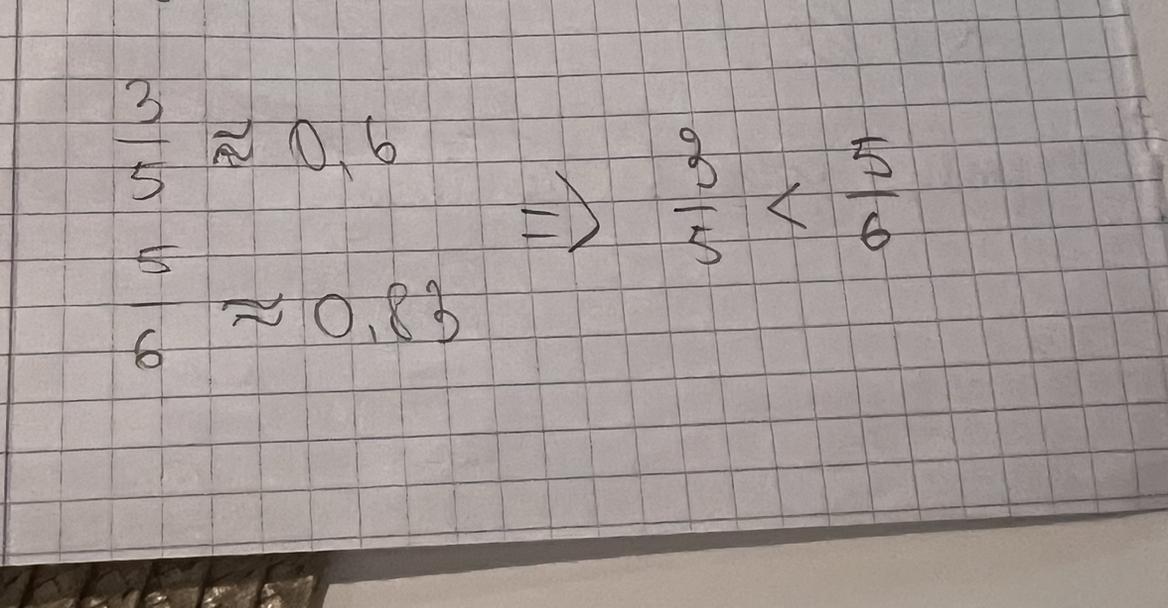 3/5 ≈ 0,6
5/6 ≈ 0,83
=> 3/5 < 5/6